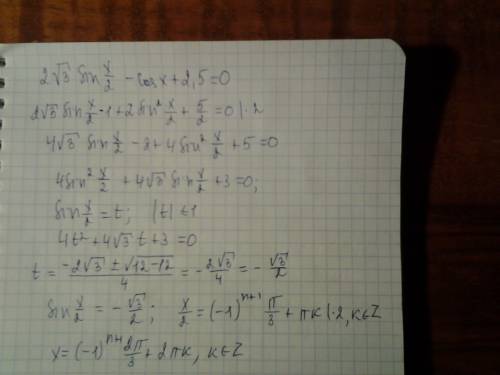 2√3 sin x/2 - cos x + 2,5 = 0
2√3 sin x/2 - 1 + 2 sin² x/2 + 5/2 = 0 |·2
4√3 sin x/2 - 2 + 4 sin² x/2 + 5 = 0
4 sin² x/2 + 4√3 sin x/2 + 3 = 0;
sin x/2 = t; |t| ≤ 1
4t² + 4√3 t + 3 = 0
t = (-2√3 ± √(12-12))/4 = -2√3/4 = -√3/2
sin x/2 = -√3/2; x/2 = (-1)ⁿ⁺¹ π/3 + πk |·2, k∈Z
x = (-1)ⁿ⁺¹ 2π/3 + 2πk, k∈Z